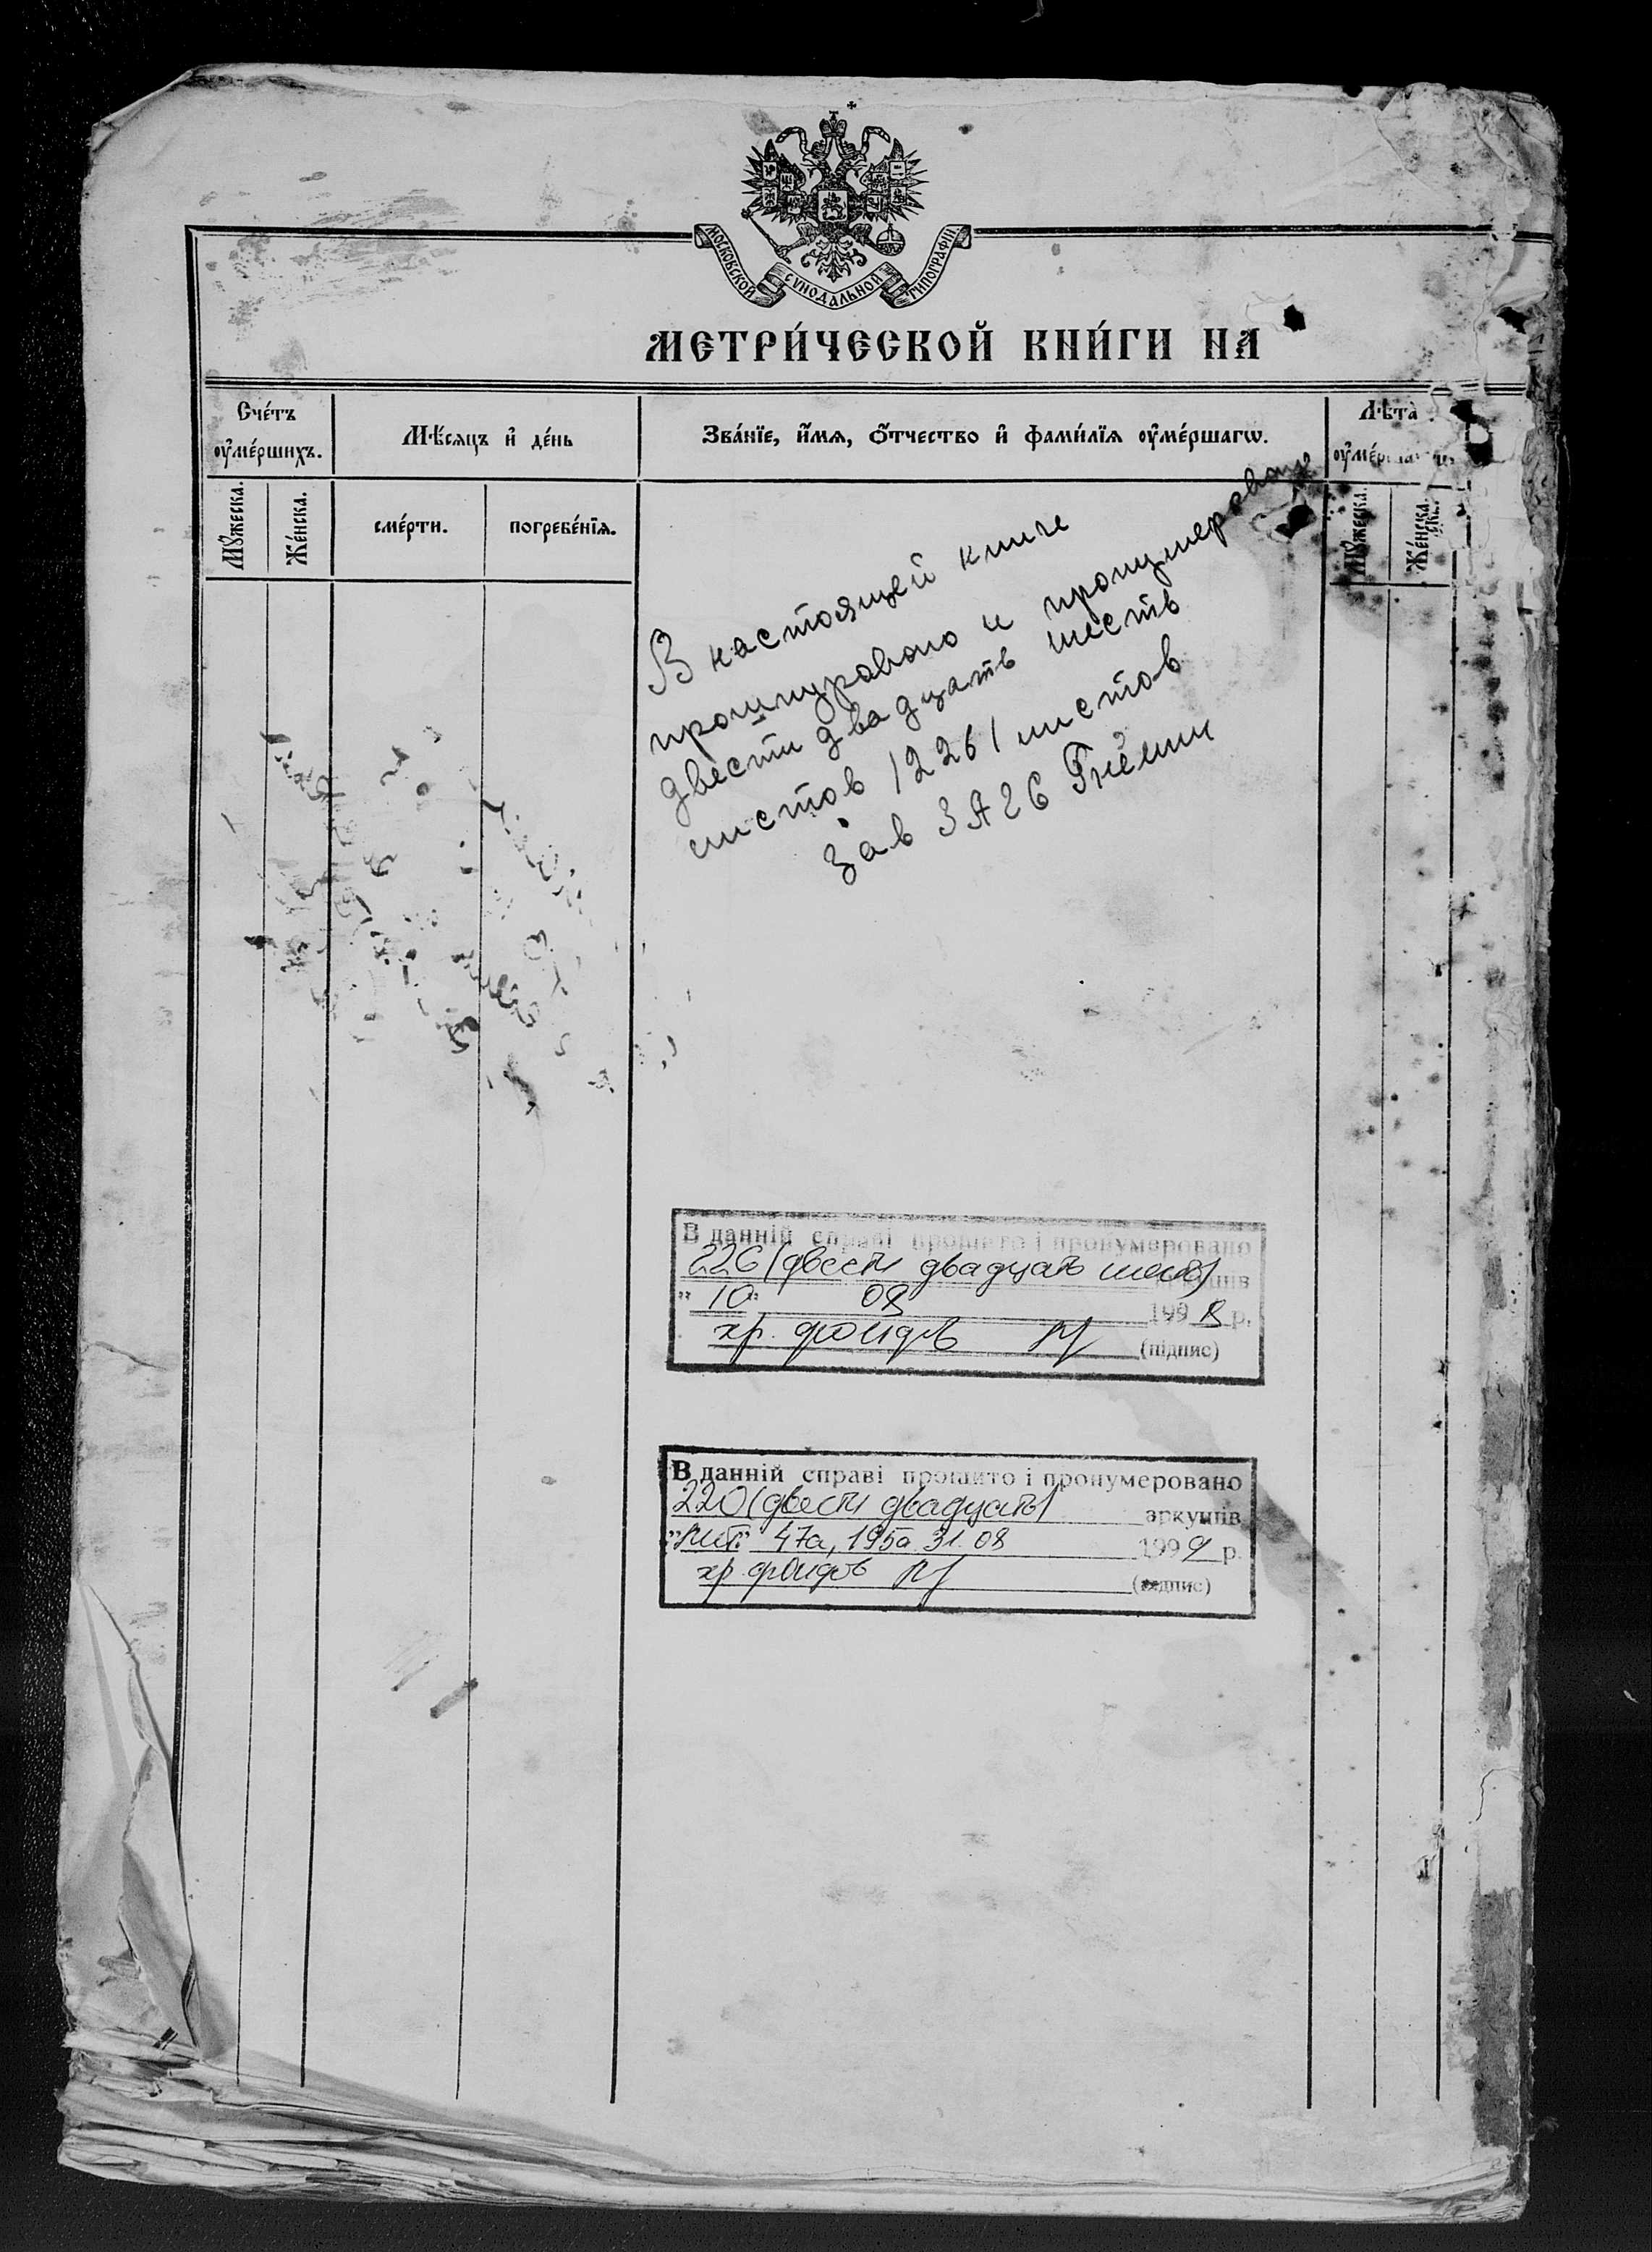 МОСКОВСКОЙ СУНОДАЛЬНОЙ ТИПОГРАФІИ
МЕТРИ́ЧЕСКОЙ КНИ́ГИ НА
Сче́тъ оу҆ме́ршихъ.
Мѣ́сяцъ и҆ де́нь
Зва́нїе, и҆́мѧ, ѻ҆́тчество и҆ фами́лїѧ оу҆ме́ршагѡ.
Лѣта̀
Мꙋ́жеска.
Же́нска.
сме́рти.
погребе́нїѧ.
Мꙋ́жеска.
Же́нска.
В настоящей книге
прошнуровано и пронумеровано
двести двадцать шесть
листов /226/ листов
Зав ЗАГС
В данній справі прошито і пронумеровано
226 (двести двадцать шесть) аркушів
" 10 " 08 1998 р.
хр. фондов (підпис)
В данній справі прошито і пронумеровано
220 (двести двадцать) аркушів
"лит" 47а, 195а 31.08 1999 р.
хр. фондов (підпис)